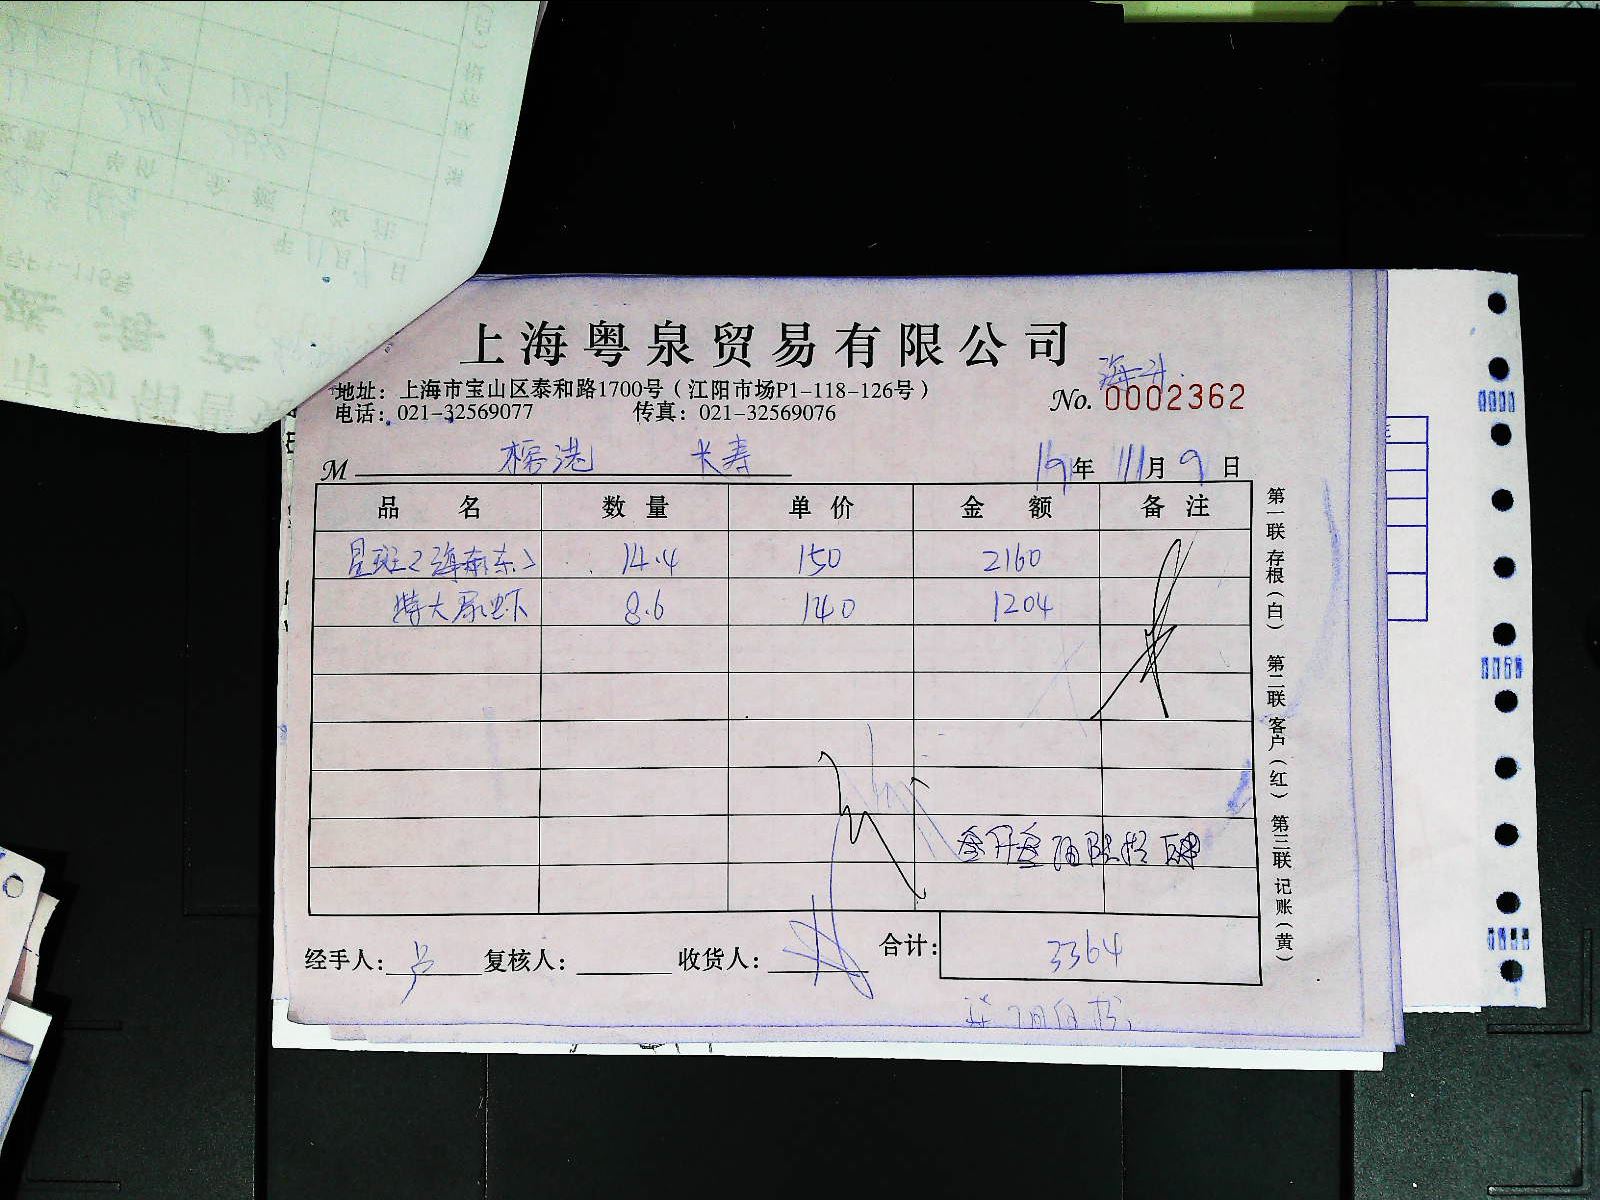 上海粤泉贸易有限公司
地址：上海市宝山区泰和路1700号（江阳市场P1-118-126号）
电话：021-32569077 传真：021-32569076
No. 0002362
M 长寿 19年 11月9日
品 名 数 量 单 价 金 额 备 注
星斑(海南东) 14.4 150 2160
特大尿虾 8.6 140 1204
经手人： 卢 复核人： 收货人： 合计： 3364
第一联 存根（白） 第二联 客户（红） 第三联 记账（黄）